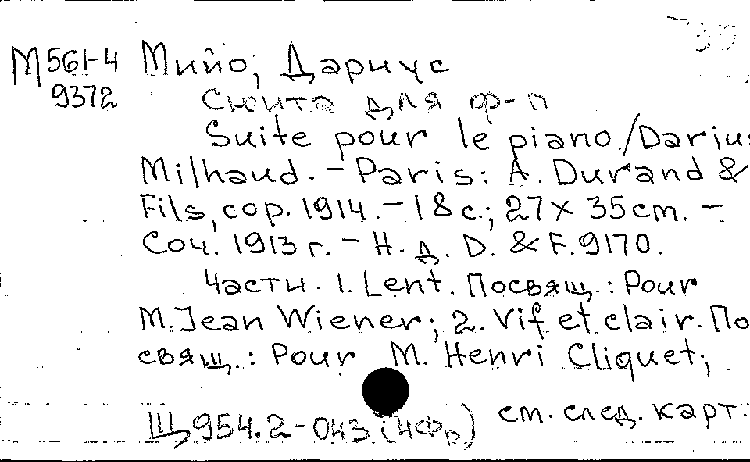 М561-4 Мийо, Дариус
9372
Сюита для ф-п
Suite pour le piano/Darius
Milhaud. - Paris: A. Durand &
Fils, cop. 1914. - 18 с.; 27 x 35 cm. -
Соч. 1913 г. - Н. д. D. & F. 9170.
Части. 1. Lent. Посвящ.: Pour
M. Jean Wiener; 2. Vif et clair. По
свящ.: Pour M. Henri Cliquet;
Щ954.2-043(4Фр) см. след. карт.